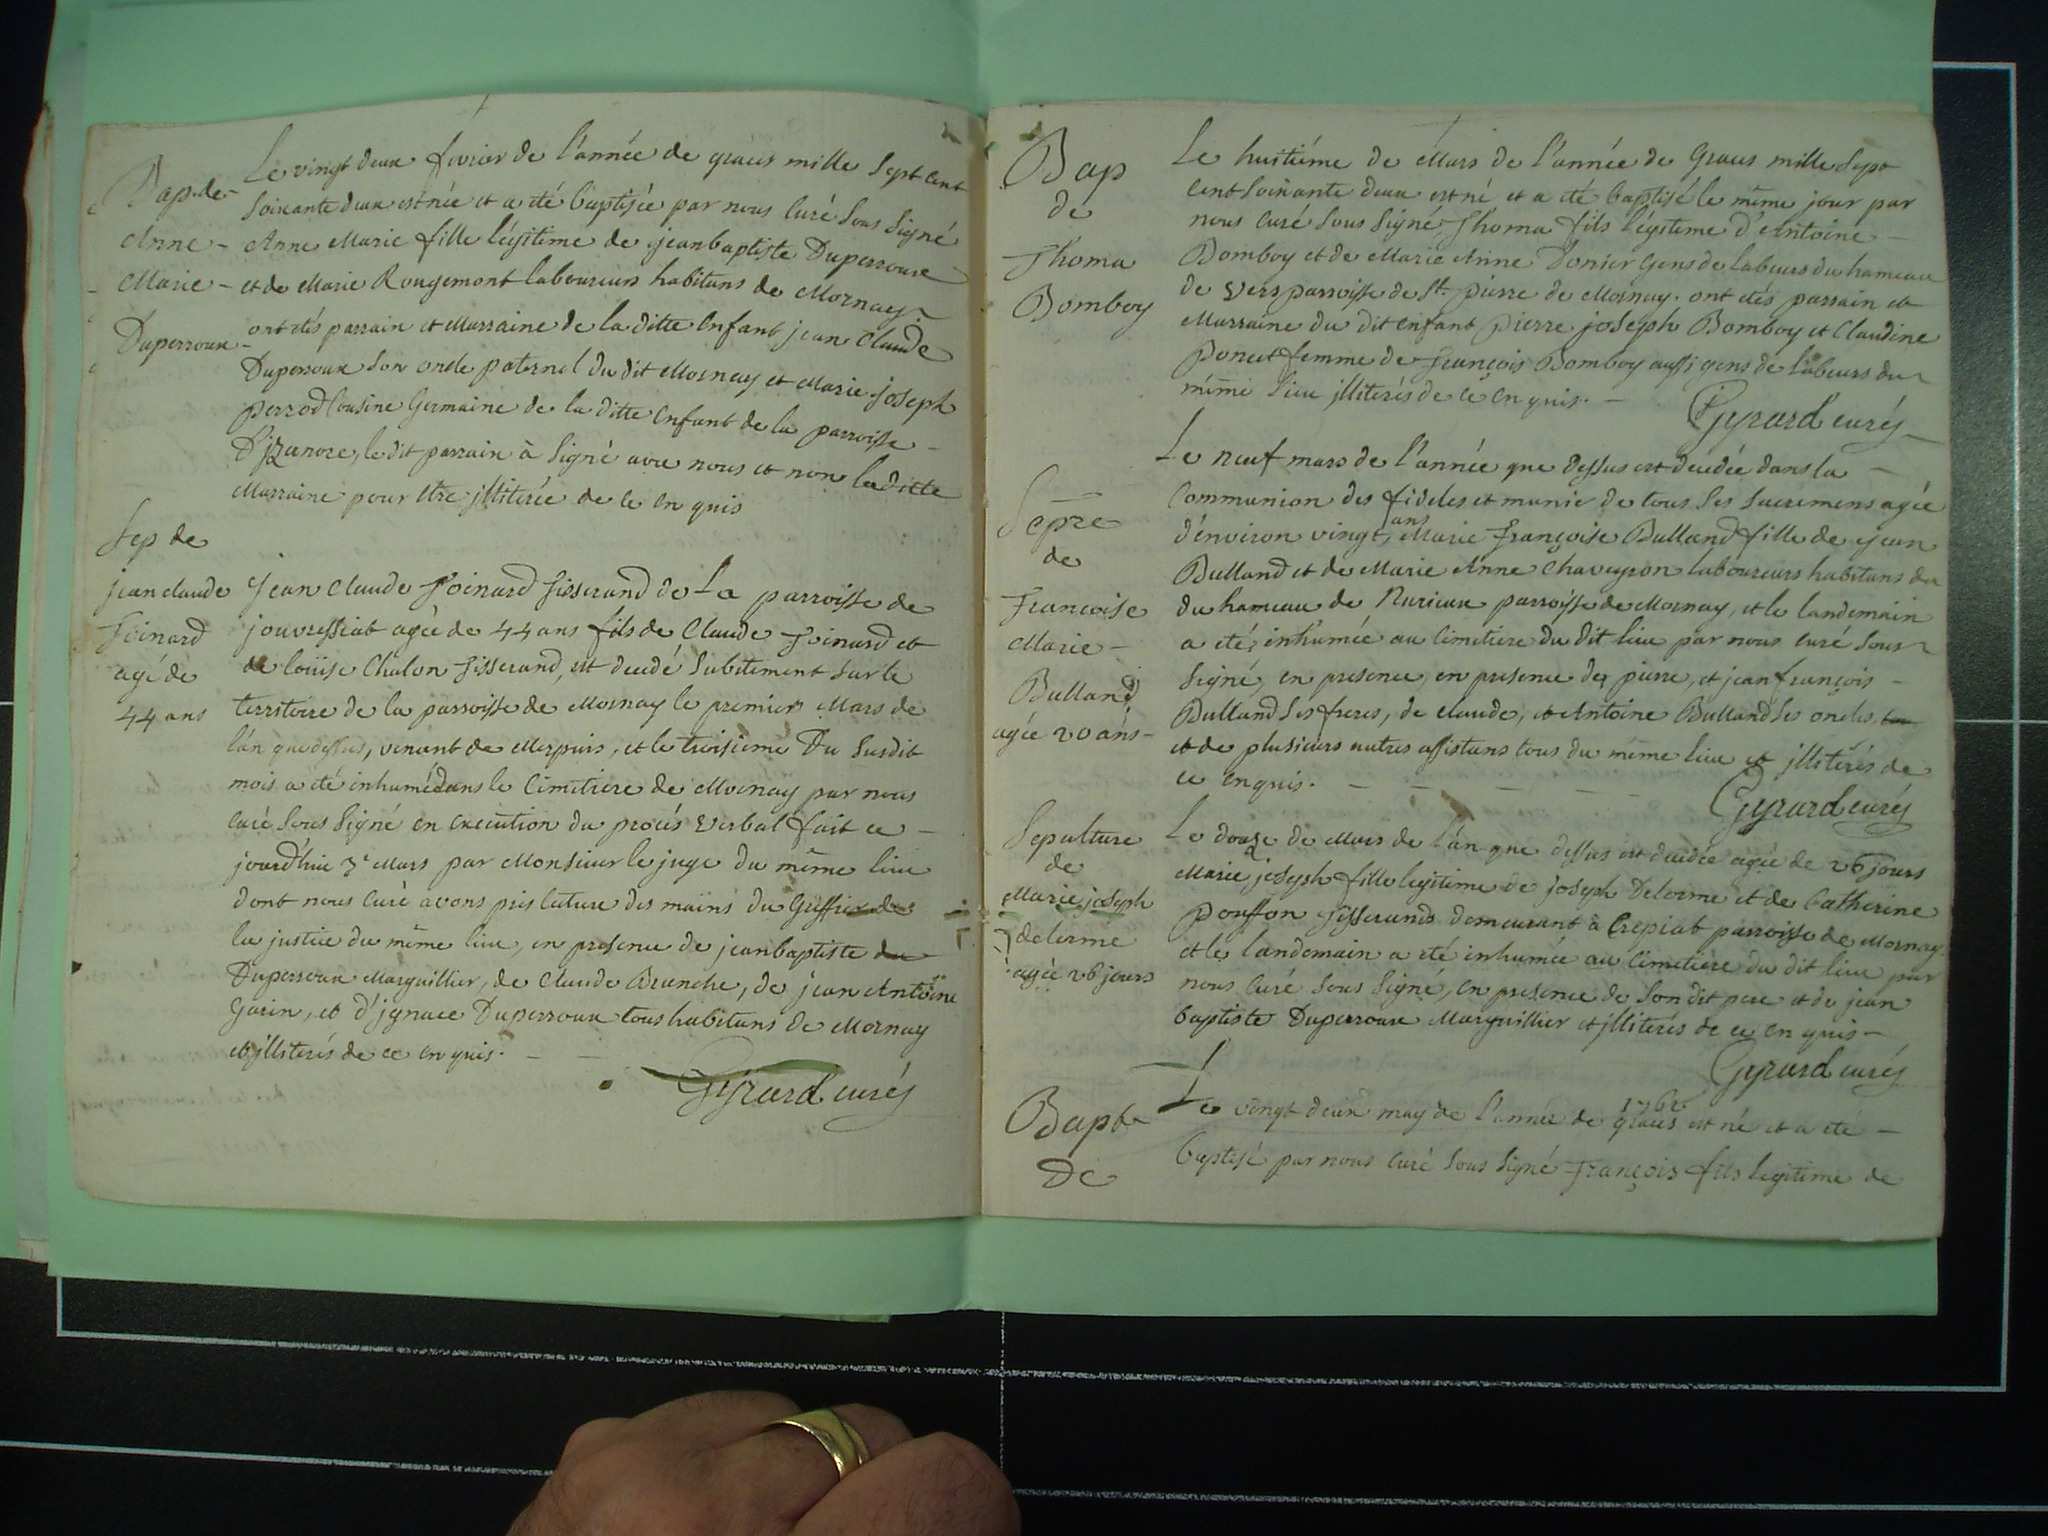 Bap. de
Anne -
Marie -
Duperroux -
Le vingt deux fevrier de l'année de graces mille sept cent
soixante deux est née et a été baptisée par nous curé sous signé
Anne Marie fille légitime de jeanbaptiste Duperroux
et de Marie Rougemont laboureurs habitans de Mornay
ont étés parrain et Marraine de la ditte enfant jean Claude
Duperroux son oncle paternel du dit Mornay et Marie joseph
perrod Cousine Germaine de la ditte enfant de la parroisse -
D'jzanore, le dit parrain à signé avec nous et non laditte
Marraine pour être jlliterée de ce en quis
Sep de
jean claude
Foinard
agé de
44 ans
Jean Claude Foinard tisserand de La parroisse de
jouvressiat agée de 44 ans fils de Claude Foinard et
de loüise Chalon tisserand, est decedé subitement sur le
territoire de la parroisse de Mornay le premier Mars de
l'an quedessus, venant de Merpuis, et le troisieme Du susdit
mois a été inhumé dans le Cimitiere de Mornay par nous
curé sous signé en execution du procés verbal fait ce -
jourd'hui 3e Mars par Monsieur le juge du même lieu
dont nous Curé avons pris lature des mains du Greffier de
la justice du même lieu, en presence de jeanbaptiste du
Duperroux Marguillier, de Claude Brunche, de jean Antoine
Garin, et d'jgnace Duperroux tous habitans de Mornay
et jlliterés de ce en quis. - -
Gyrard curés
Bap
de
Thoma
Bomboy
Le huitiéme de Mars de l'année de Graces mille Sept
cent soixante deux est né et a été baptisé le même jour par
nous curé sous signé, Thoma fils légitime d'Antoine -
Bomboy et de Marie Anne Donier gens de labeurs du hameau
de Vers parroisse de St. pierre de Mornay. ont étés parrain et
Marraine du dit enfant pierre joseph Bomboy et Claudine
Poncet femme de françois Bomboy aussi gens de labeurs du
même lieu jlliterés de ce en quis. -
Gyrard curés
Sepre
de
Francoise
Marie -
Bulland
agée 20 ans -
Le neuf mars de l'année que dessus est decedée dans la -
Communion des fideles et munie de tous ses sacremens agée
d'énviron vingt ans Marie Françoise Bulland fille de jean
Bulland et de Marie Anne Chaveyron laboureurs habitans du
du hameau de Nurieux parroisse de Mornay, et le landemain
a eté inhumée au Cimitiere du dit lieu par nous curé sous
signé, en presence, en presence de pierre, et jean françois -
Bulland ses freres, de claude, et Antoine Bulland ses oncles,
et de plusieurs autres assistans tous du même lieu et jlliterés de
ce enquis. - - - - -
Gyrard curés
Sepulture
de
Marie joseph
delorme
agée 26 jours
Le douze de Mars de l'an que dessus est decedée agée de 26 jours
Marie joseph fille legitime de joseph Delorme et de Catherine
Pouffon tisserands demeurant à Crepiat parroisse de Mornay
et le landemain a eté inhumée au Cimitiere du dit lieu par
nous Curé sous signé, en presence de son dit pere et de jean
baptiste Duperroux Marguillier et jlliterés de ce en quis -
Gyrard curés
Bapte
De
1762
Le vingt deux may de l'année de graces est né et a eté -
baptisé par nous curé sous signé François fils legitime de